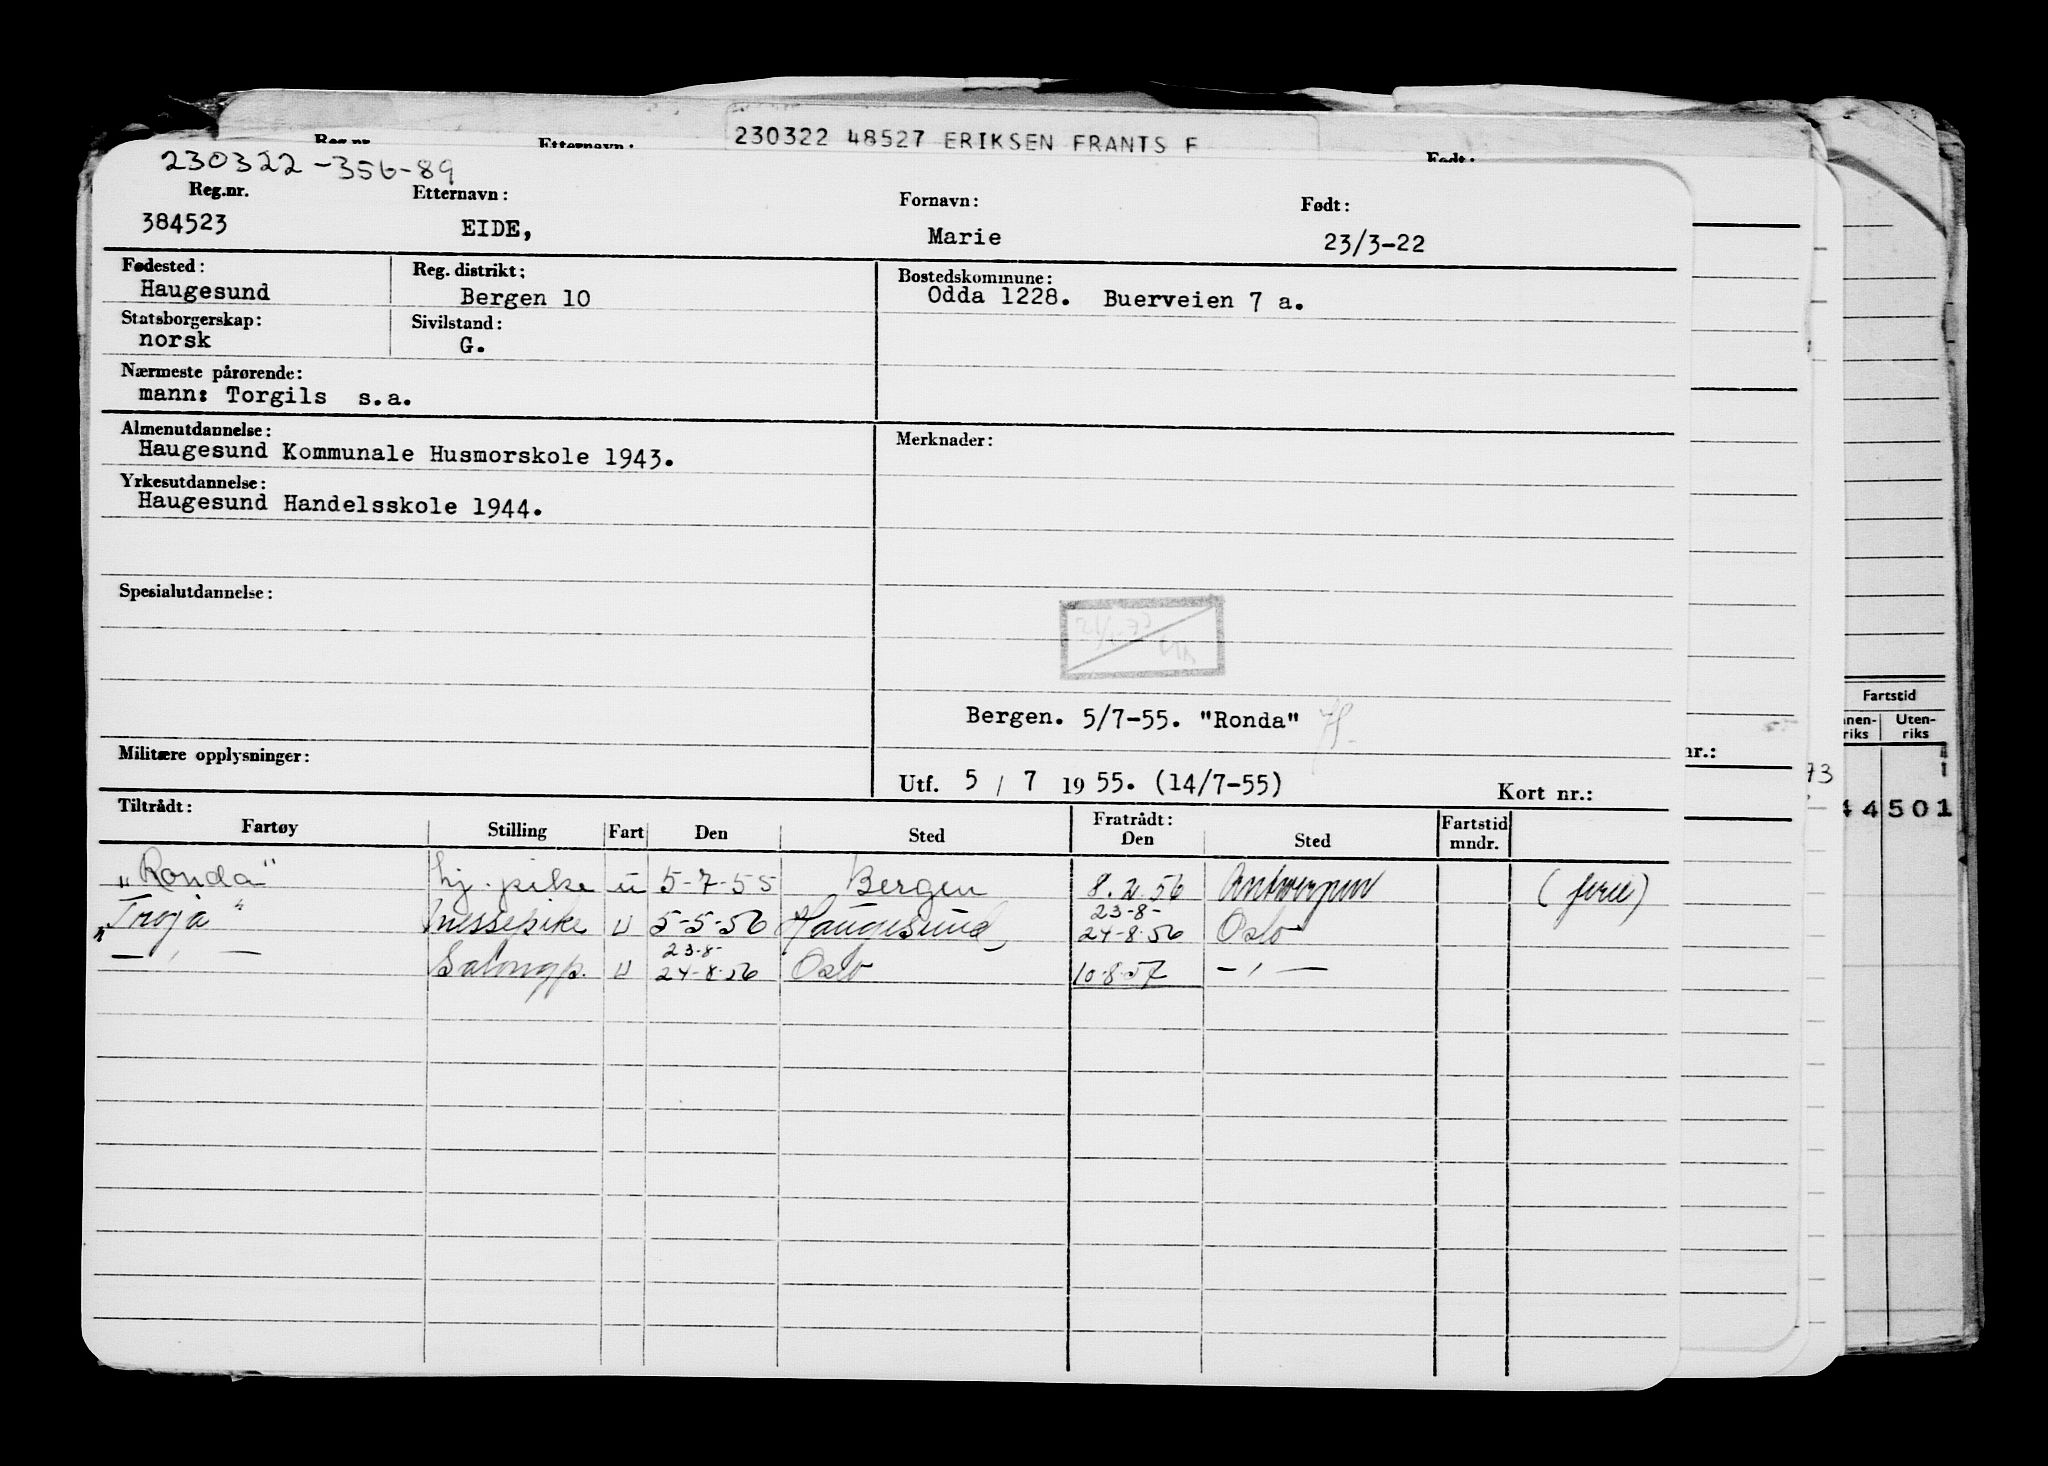 Reg.nr. Etternavn: 230322 48527 ERIKSEN FRANTS F Født:
230322-356-89
Reg.nr. Etternavn: Fornavn: Født:
384523 EIDE, Marie 23/3-22
Fødested: Reg. distrikt: Bostedskommune:
Haugesund Bergen 10 Odda 1228. Buerveien 7 a.
Statsborgerskap: Sivilstand:
norsk G.
Nærmeste pårørende:
mann: Torgils s.a.
Almenutdannelse: Merknader:
Haugesund Kommunale Husmorskole 1943.
Yrkesutdannelse:
Haugesund Handelsskole 1944.
Spesialutdannelse:
Bergen. 5/7-55. "Ronda"
Militære opplysninger:
Utf. 5 / 7 1955. (14/7-55) Kort nr.:
Tiltrådt: Fratrådt:
Fartøy Stilling Fart Den Sted Den Sted Fartstid mndr.
"Ronda" hj. pike u 5-7-55 Bergen 8.2.56 Antwerpen (ferie)
23-8-
"Troja" messepike u 5-5-56 Haugesund 24-8-56 Oslo
23-8-
— " — Salongp. u 24-8-56 Oslo 10-8-57 — " —
Fartstid
nnen- Uten-
riks riks
nr.:
73
44501